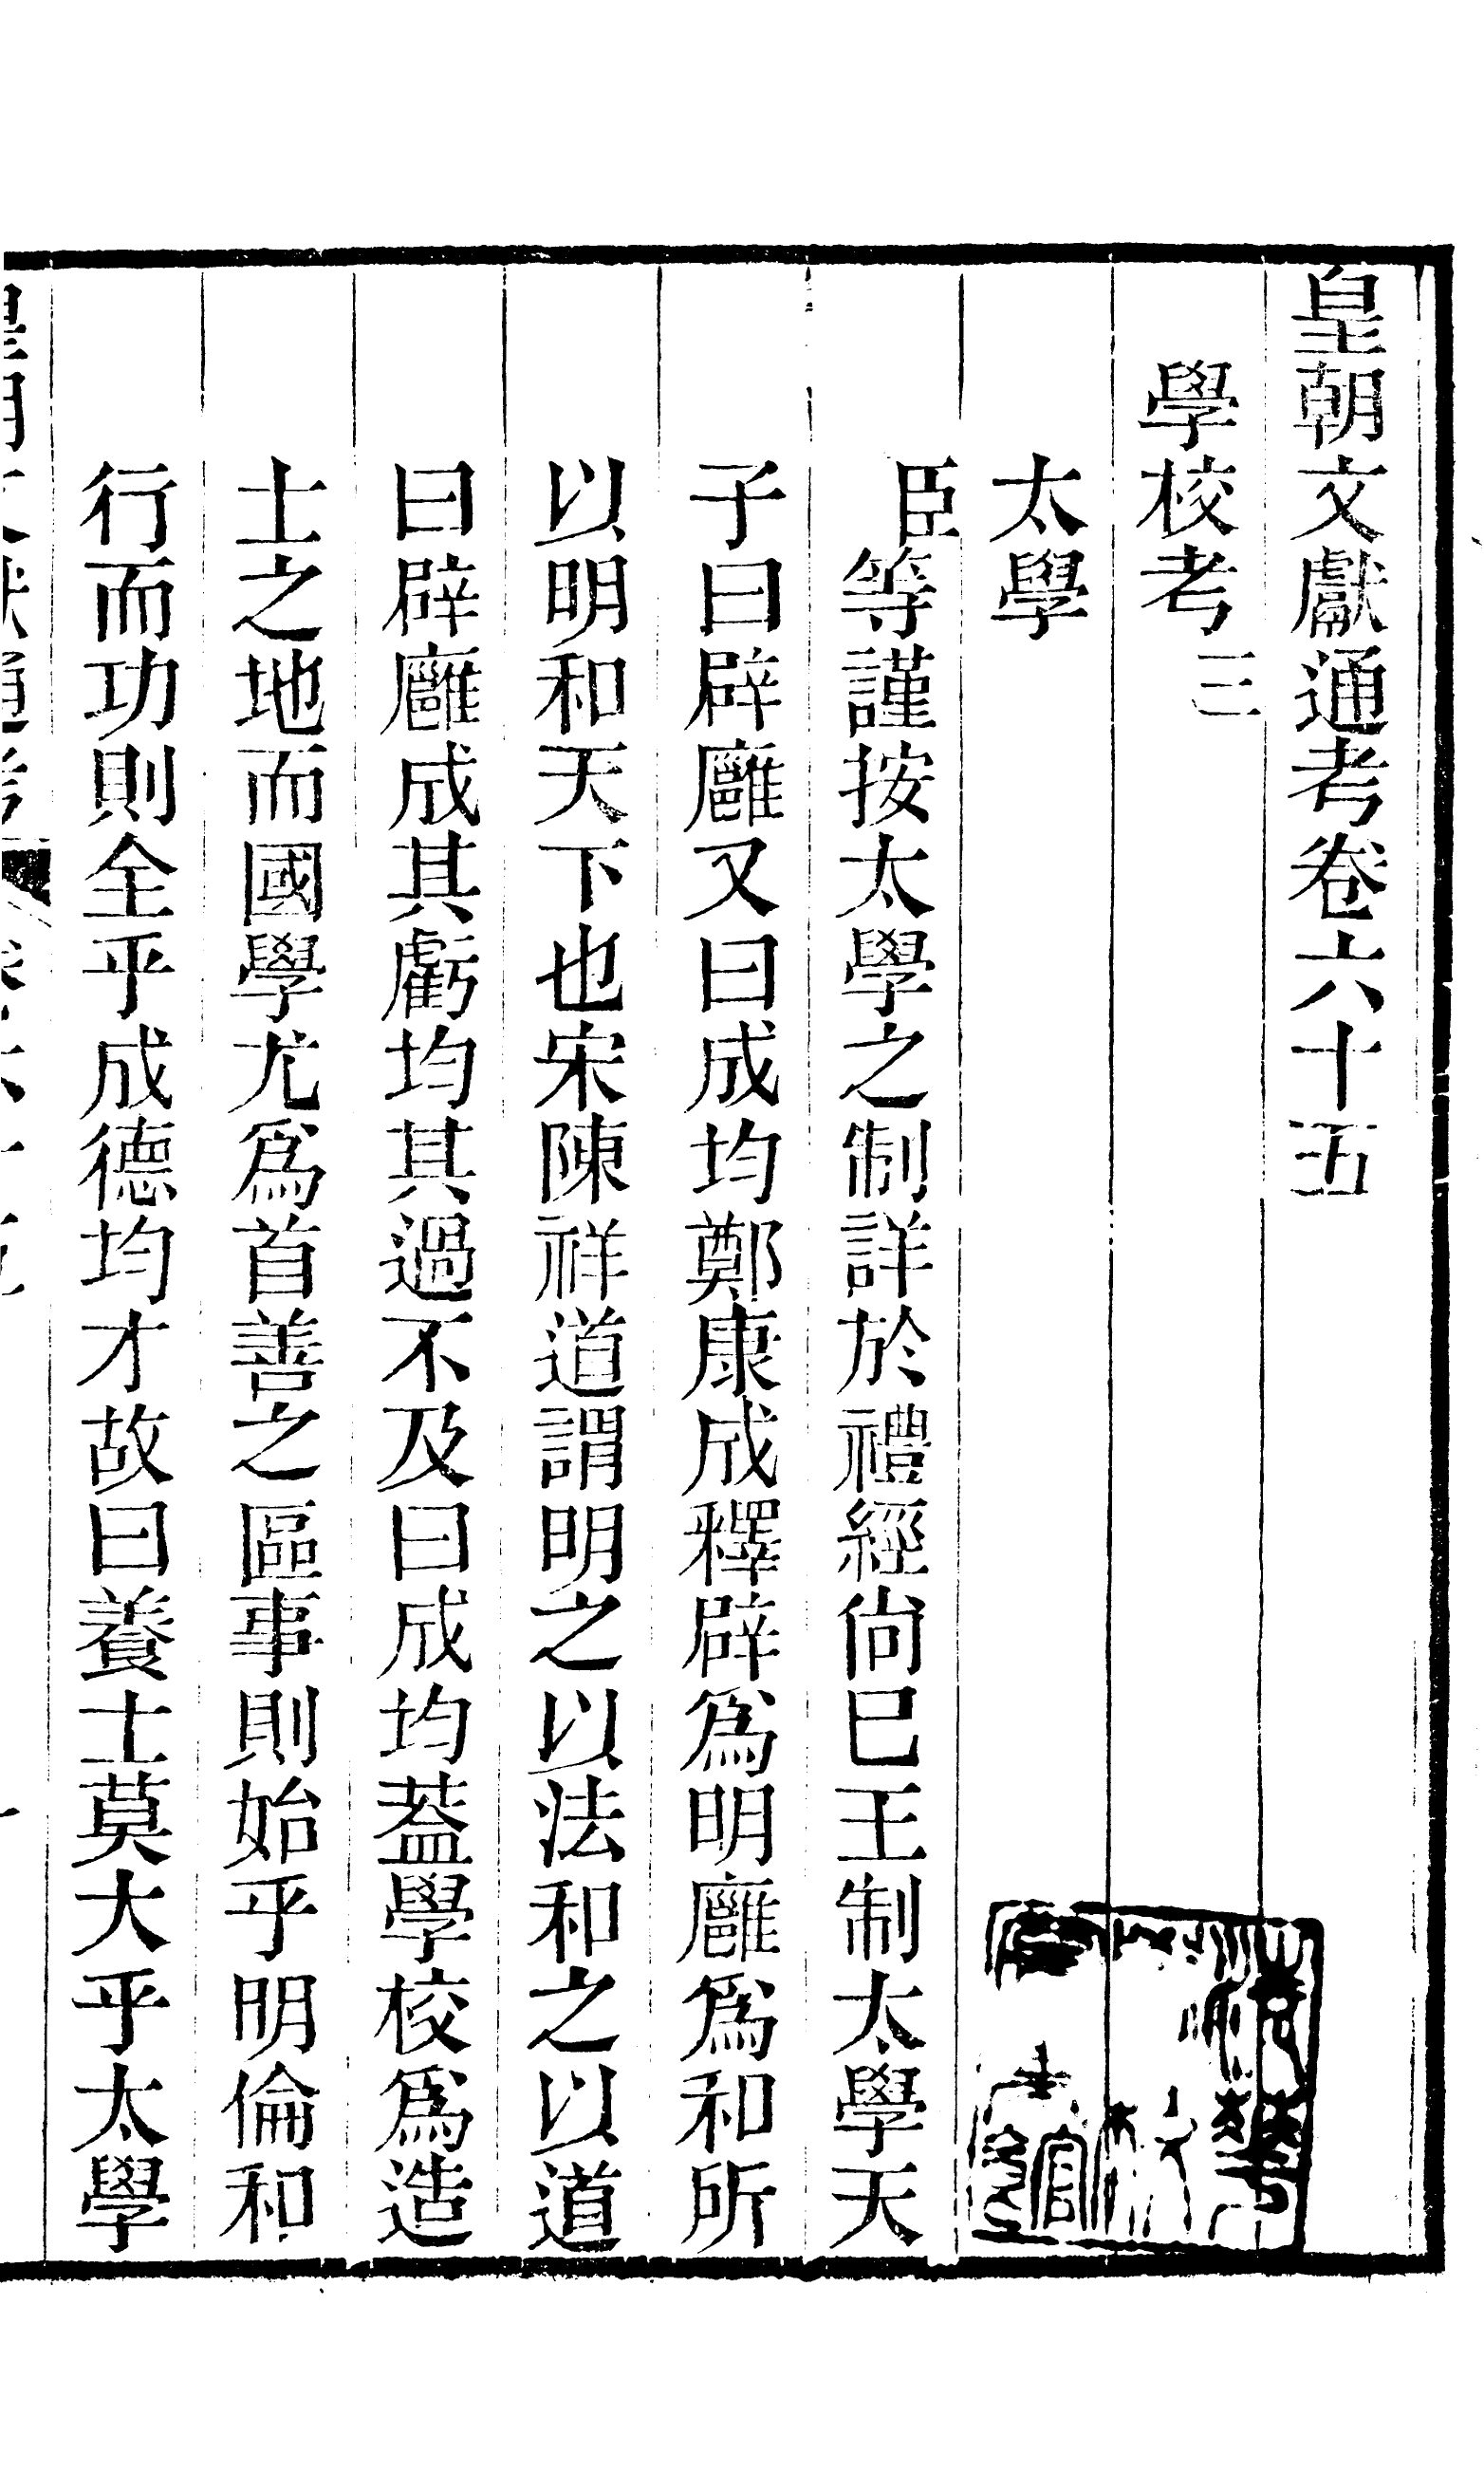 皇朝文獻通考卷六十五
學校考三
太學
臣等謹按太學之制詳於禮經尙巳王制太學天
子曰辟廱又曰成均鄭康成釋辟爲明廱爲和所
以明和天下也宋陳祥道謂明之以法和之以道
曰辟廱成其虧均其過不及曰成均葢學校爲造
士之地而國學尤爲首善之區事則始乎明倫和
行而功則全乎成德均才故曰養士莫大乎太學